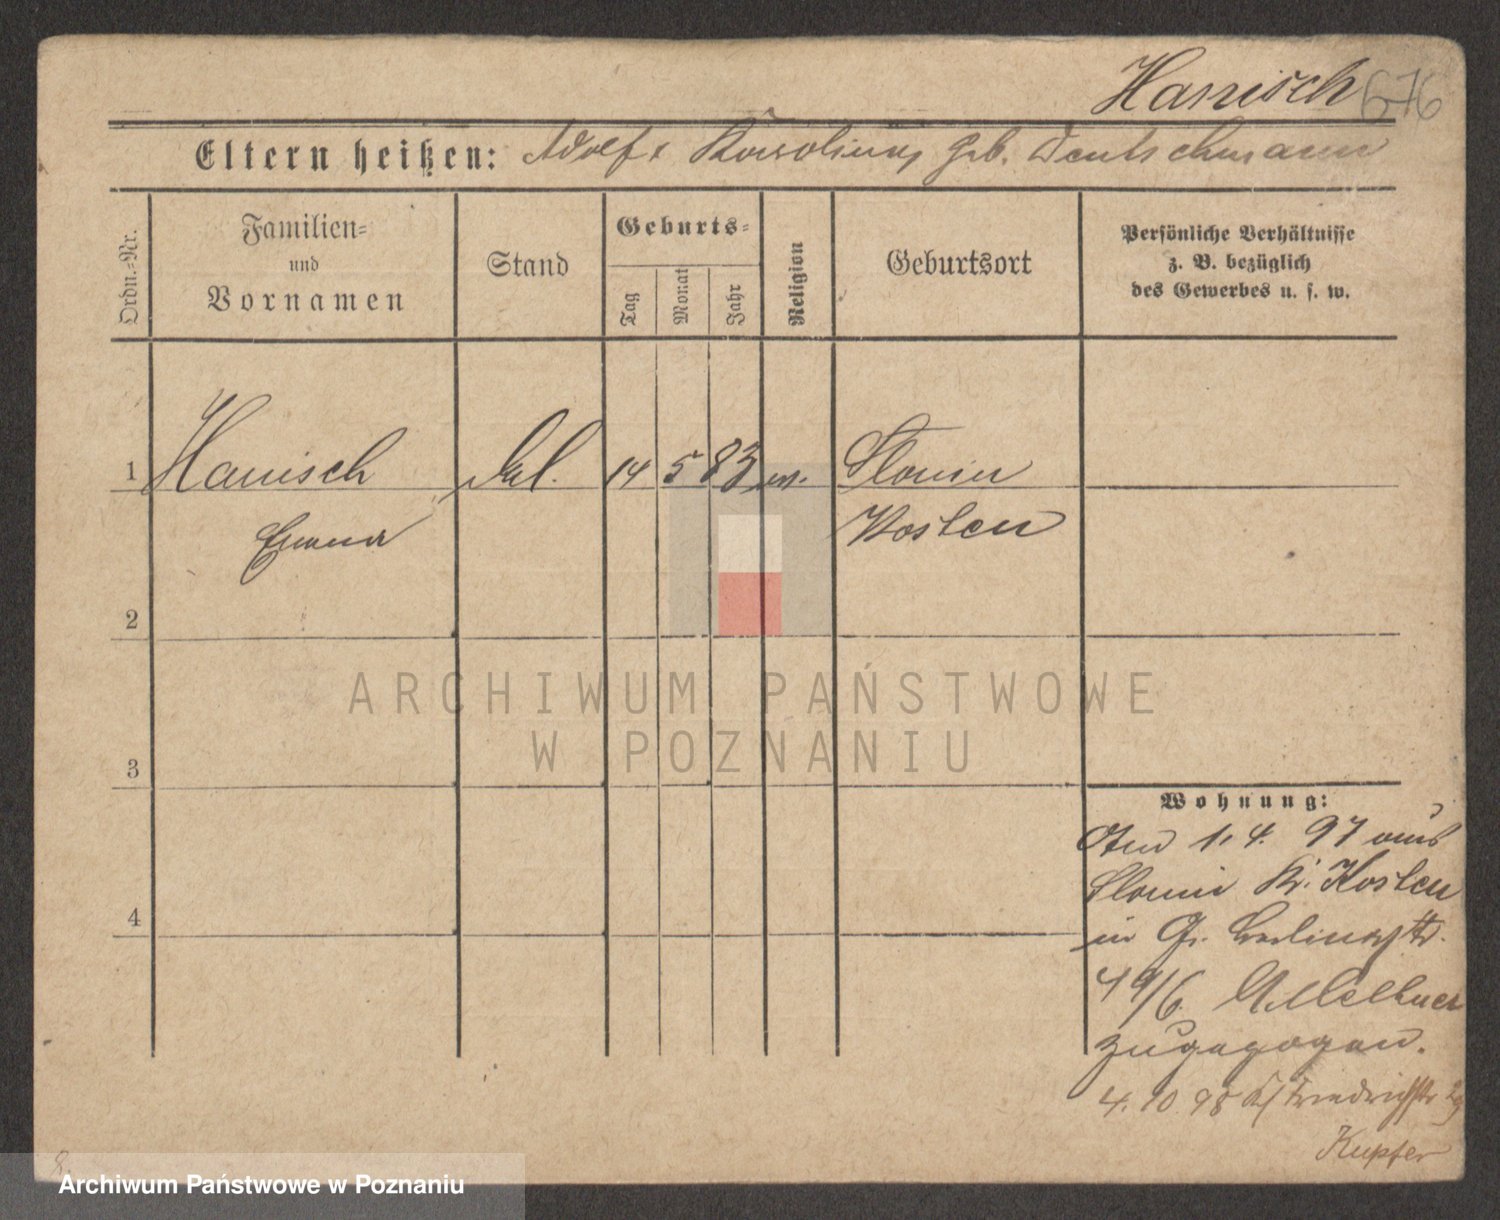 Hanisch 676
Eltern heißen: Adolf u Karoline geb. Deutschmann
Ordn.-Nr.
Familien-
und
Vornamen
Stand
Geburts-
Tag
Monat
Jahr
Religion
Geburtsort
Persönliche Verhältnisse
z. B. bezüglich
des Gewerbes u. s. w.
1 Hanisch 14 5 83 ev. Slonin
Emma Kosten
2
3
4
Wohnung:
Am 1. 4. 97 aus
Slonin Kr. Kosten
in Gr. Berlinerstr.
49/6.
zugezogen.
4. 10. 98 Friedrichstr
Kupfer
8.
ARCHIWUM PAŃSTWOWE
W POZNANIU
Archiwum Państwowe w Poznaniu